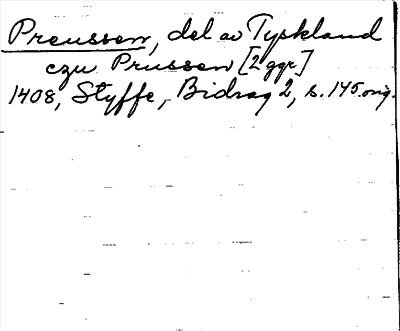 Preussen, del av Tyskland
czu Prussen [2 ggr]
1408, Styffe, Bidrag 2, s. 145 orig.